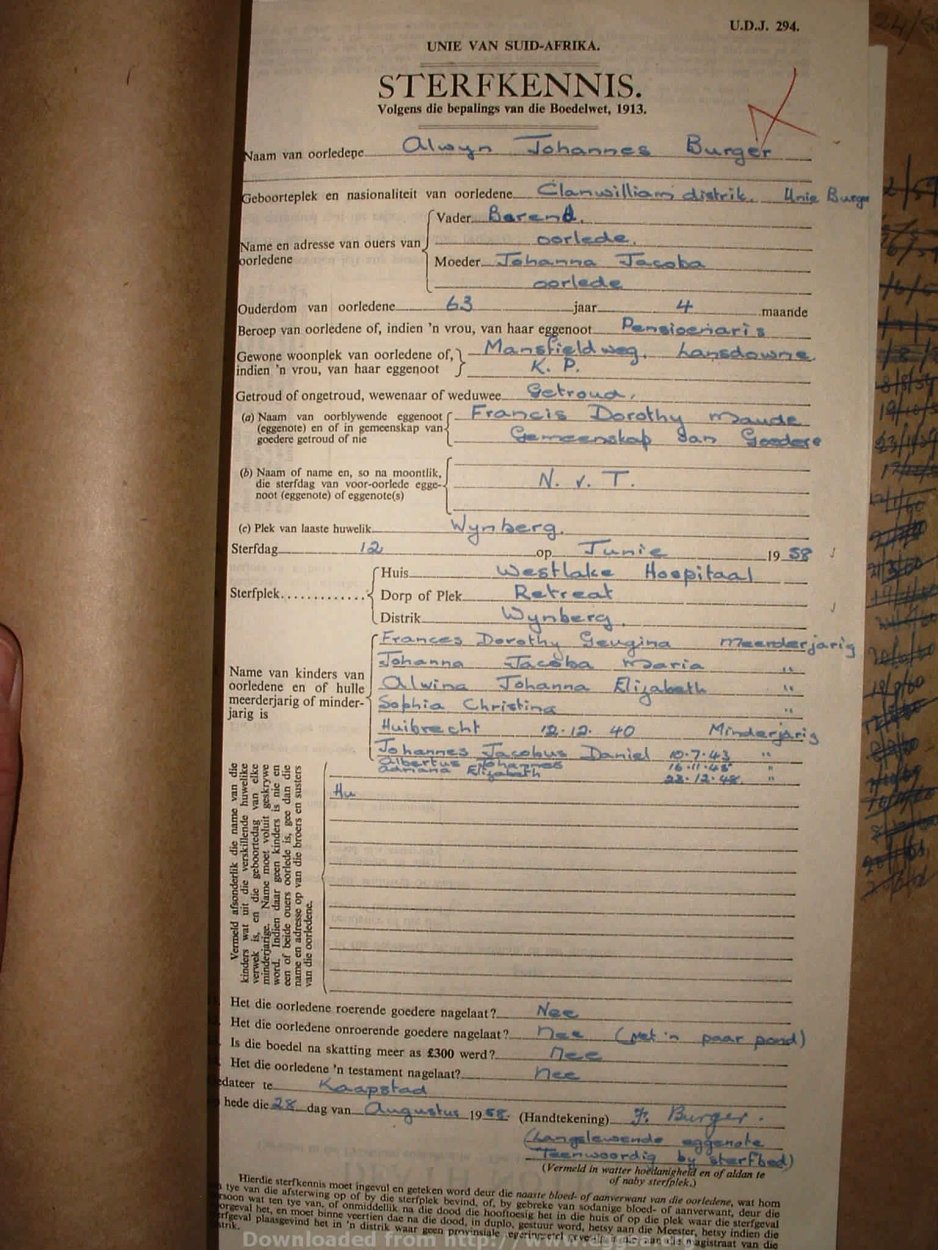 U.D.J. 294.
UNIE VAN SUID-AFRIKA.
STERFKENNIS.
Volgens die bepalings van die Boedelwet, 1913.
Naam van oorledene Alwyn Johannes Burger
Geboorteplek en nasionaliteit van oorledene Clanwilliam distrik. Unie Burger
Name en adresse van ouers van oorledene
Vader Barend.
oorlede.
Moeder Johanna Jacoba
oorlede
Ouderdom van oorledene 63 jaar 4 maande
Beroep van oorledene of, indien 'n vrou, van haar eggenoot Pensioenaris
Gewone woonplek van oorledene of, Mansfieldweg, Lansdowne.
indien 'n vrou, van haar eggenoot K. P.
Getroud of ongetroud, wewenaar of weduwee Getroud.
(a) Naam van oorblywende eggenoot Francis Dorothy Maude
(eggenote) en of in gemeenskap van Gemeenskap van Goedere
goedere getroud of nie
(b) Naam of name en, so na moontlik,
die sterfdag van voor-oorlede egge- N. v. T.
noot (eggenote) of eggenote(s)
(c) Plek van laaste huwelik Wynberg.
Sterfdag 12 op Junie 19 58
Sterfplek
Huis Westlake Hospitaal
Dorp of Plek Retreat
Distrik Wynberg.
Name van kinders van
oorledene en of hulle
meerderjarig of minder-
jarig is
Frances Dorothy Georgina Meerderjarig
Johanna Jacoba Maria "
Alwina Johanna Elizabeth "
Sophia Christina "
Huibrecht 12.12.40 Minderjarig
Johannes Jacobus Daniel 10.7.43 "
Albertus Johannes 16.11.45 "
Adriana Elizabeth 23.12.48. "
Hu
Vermeld afsonderlik die name van die
kinders wat uit die verskillende huwelike
verwek is, en die geboortedag van elke
minderjarige. Name moet voluit geskrywe
word. Indien daar geen kinders is nie en
een of beide ouers oorlede is, gee dan die
name en adresse op van die broers en susters
van die oorledene.
Het die oorledene roerende goedere nagelaat? Nee
Het die oorledene onroerende goedere nagelaat? Nee (net 'n paar pond)
Is die boedel na skatting meer as £300 werd? Nee
Het die oorledene 'n testament nagelaat? Nee
edateer te Kaapstad
hede die 28 dag van Augustus 19 58. (Handtekening) F. Burger.
(Langslewende eggenote
Teenwoordig by sterfbed)
(Vermeld in watter hoedanigheid en of aldan te
of naby sterfplek.)
Hierdie sterfkennis moet ingevul en geteken word deur die naaste bloed- of aanverwant van die oorledene, wat hom
tye van die afsterwing op of by die sterfplek bevind, of, by gebreke van sodanige bloed- of aanverwant, deur die
soon wat ten tye van, of onmiddellik na die dood die hooftoesig het in die huis of op die plek waar die sterfgeval
orgeval het, en moet binne veertien dae na die dood, in duplo, gestuur word, hetsy aan die Meester, hetsy indien die
erfgeval plaasgevind het in 'n distrik waar geen
Downloaded from http://www.eggsa